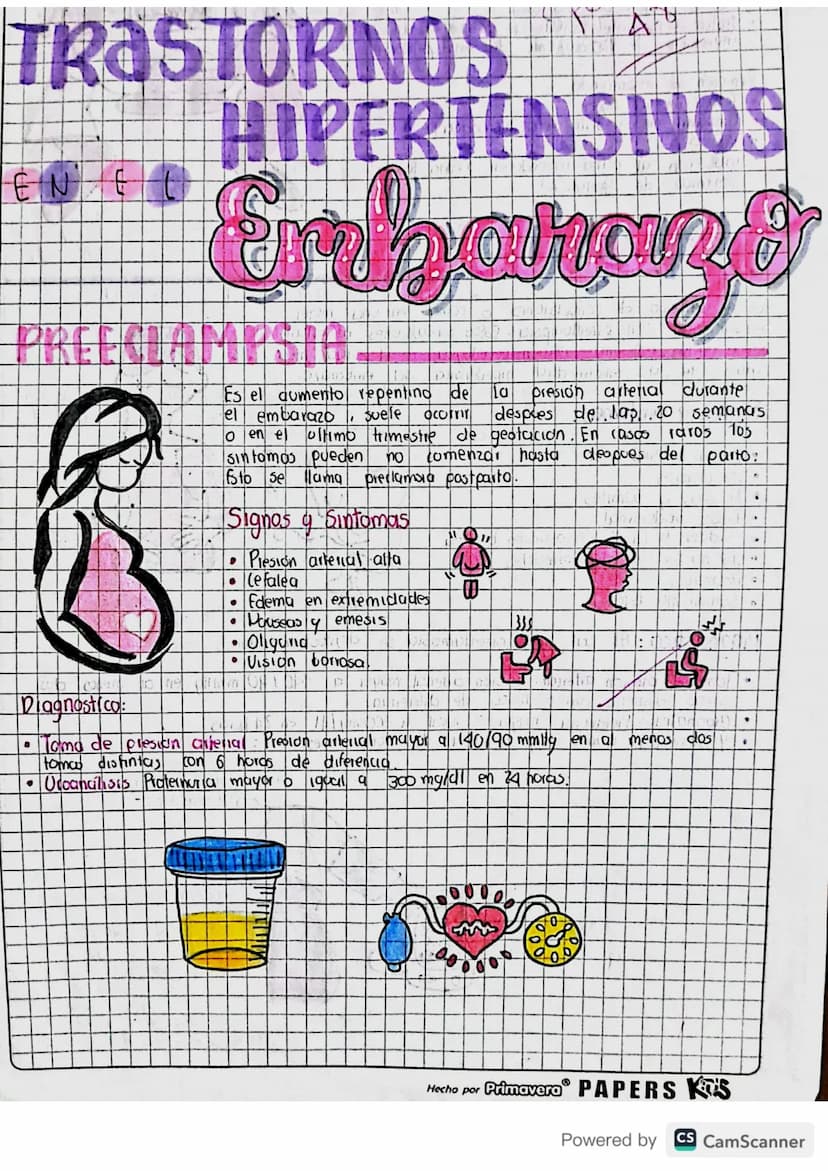 TRASTORNOS
HIPERTENSIVOS
EN EL
Embarazo
PREECLAMPSIA
Es el aumento repentino de la presión arterial durante
el embarazo, suele ocurrir despues de las 20 semanas
o en el ultimo trimestre de gestación. En casos raros los
sintomas pueden no comenzar hasta despues del parto.
Esto se llama preclamsia postparto.
Signos y Sintomas
• Presión arterial alta
• Cefalea
• Edema en extremidades
• Nauseas y emesis
• Oliguria
• Visión borrosa
Diagnostico:
• Toma de presión arterial: Presión arterial mayor a 140/90 mmHg en al menos dos
tomas distintas con 6 horas de diferencia.
• Uroanalisis Proteinuria mayor o igual a 300 mg/dl en 24 horas.
Hecho por Primavera® PAPERS KIDS
Powered by CS CamScanner